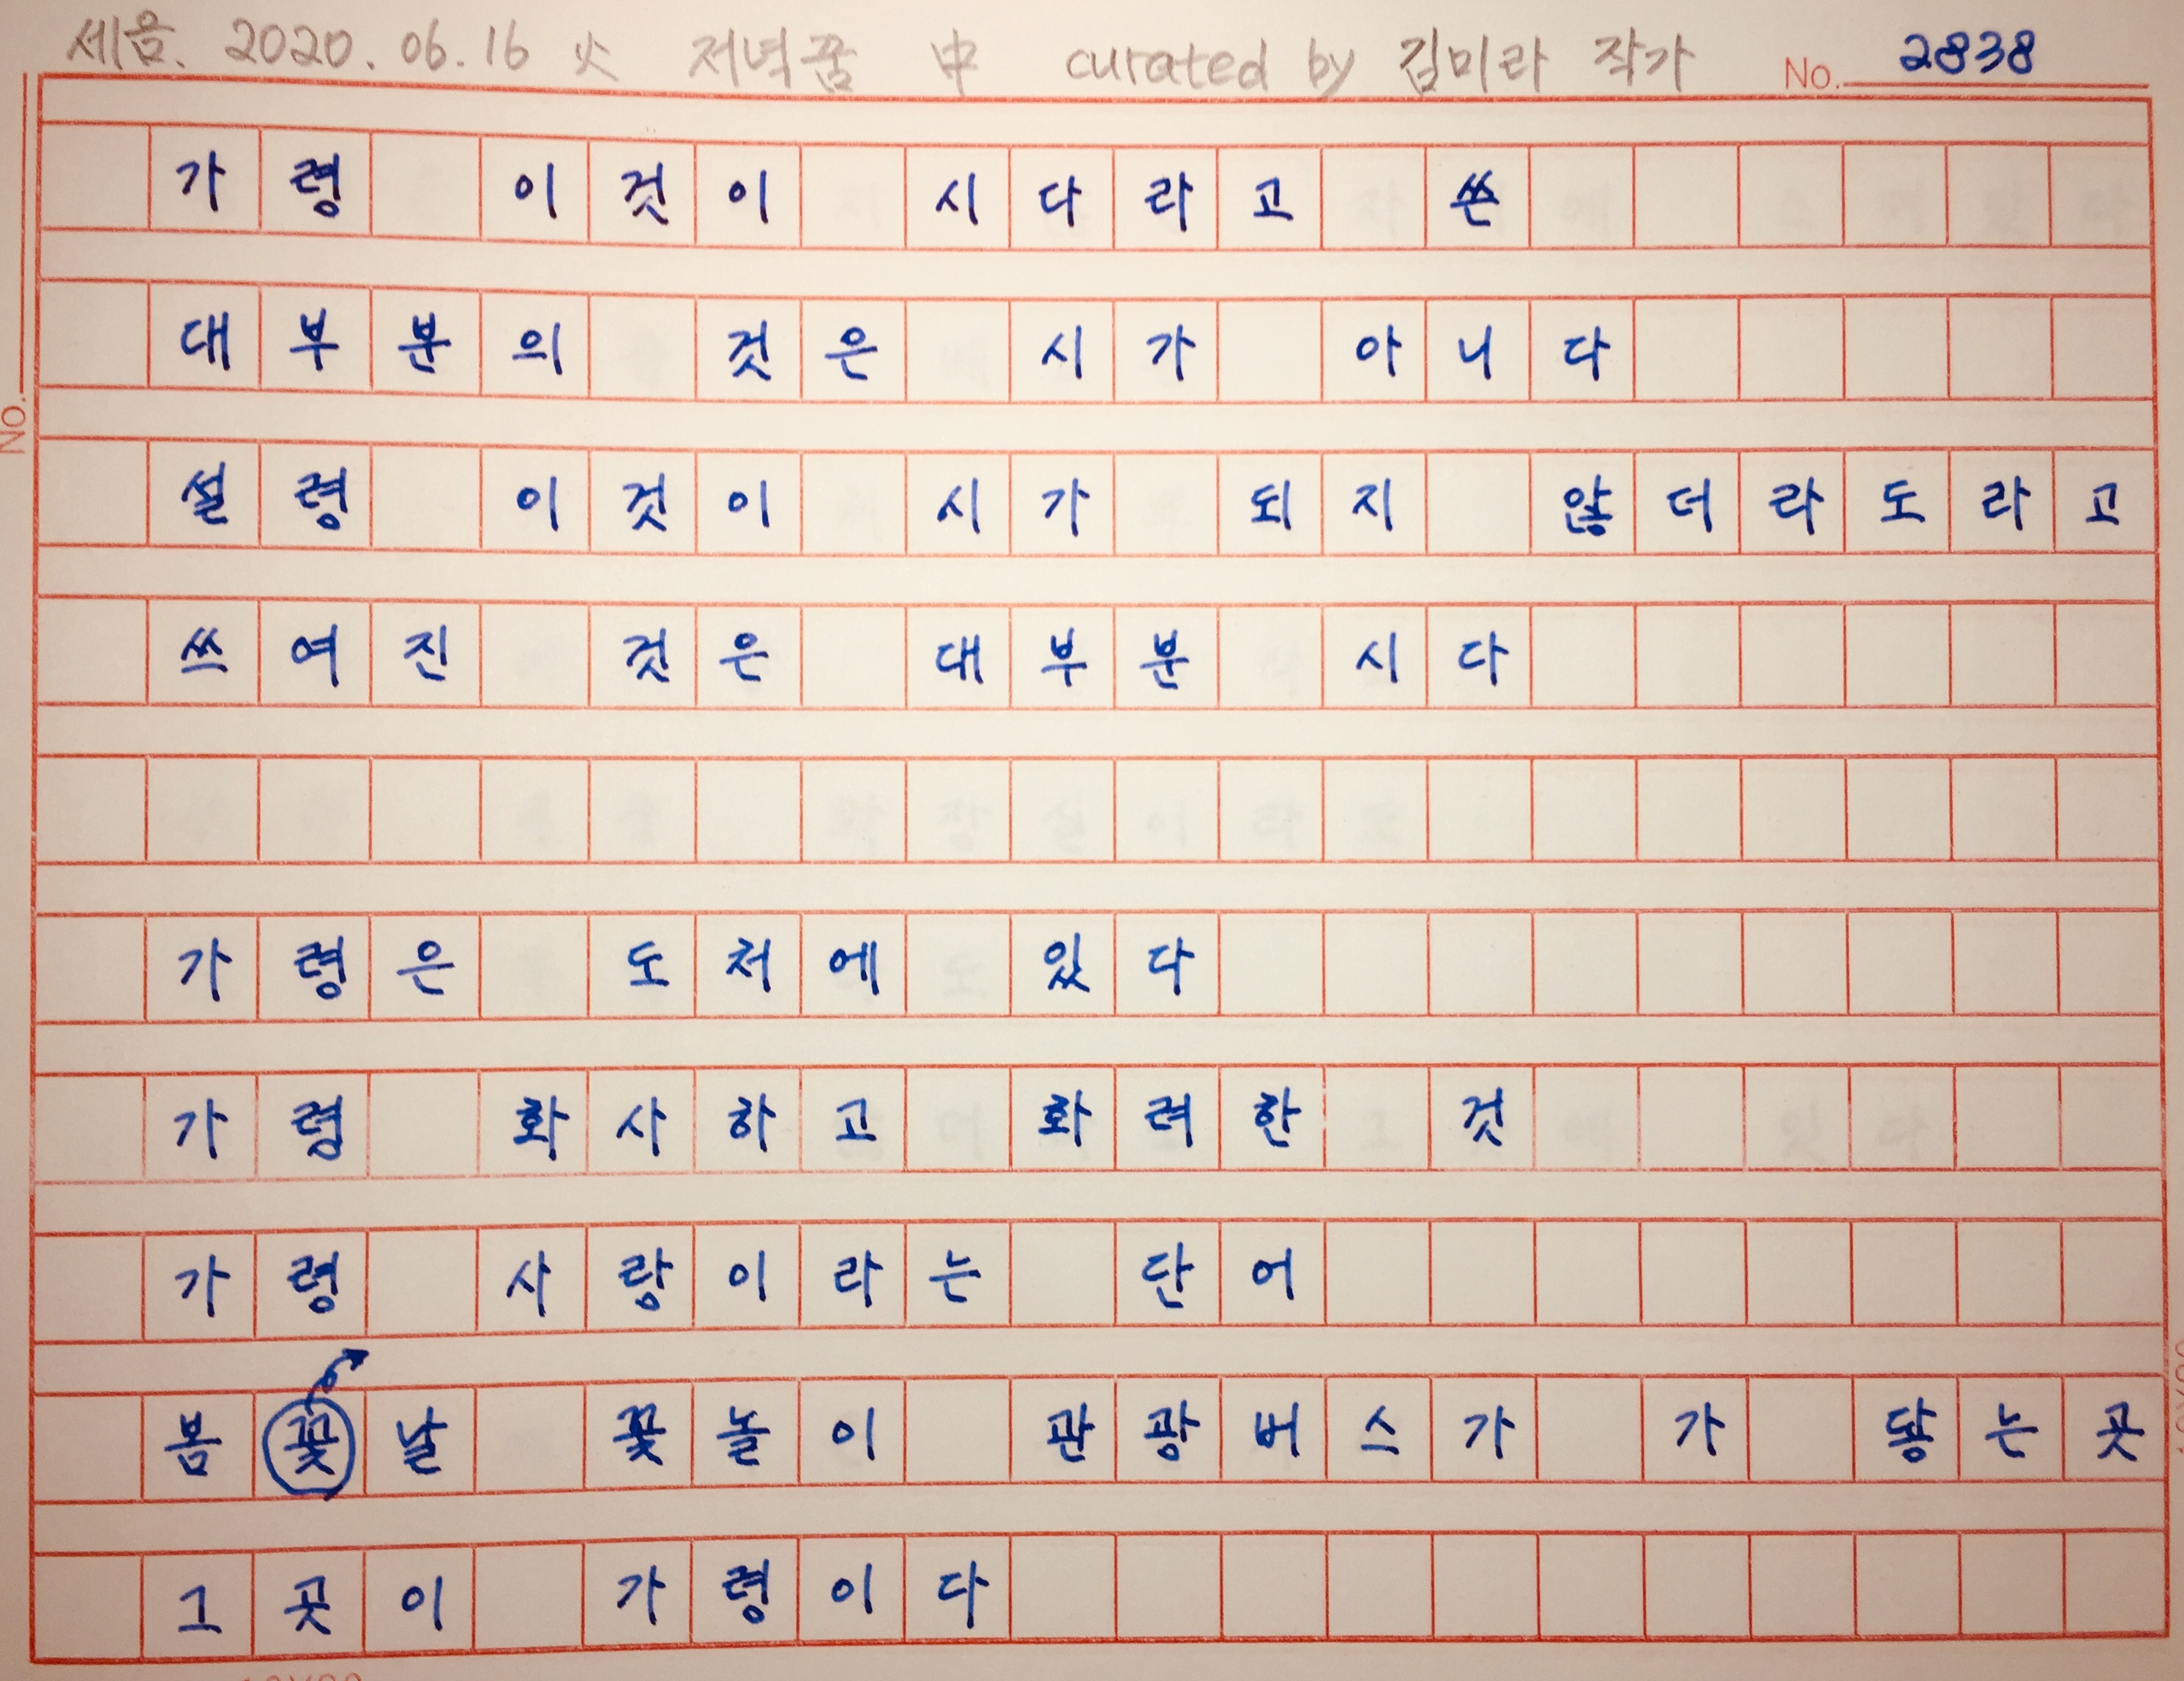 세음. 2020. 06. 16 火 저녁꿈 中 curated by 김미라 작가 No. 2838
가령 이것이 시다라고 쓴
대부분의 것은 시가 아니다
No.
설령 이것이 시가 되지 않더라도라고
쓰여진 것은 대부분 시다
가령은 도처에 있다
가령 화사하고 화려한 것
가령 사랑이라는 단어
봄꽃날 꽃놀이 관광버스가 가 닿는곳
그곳이 가령이다